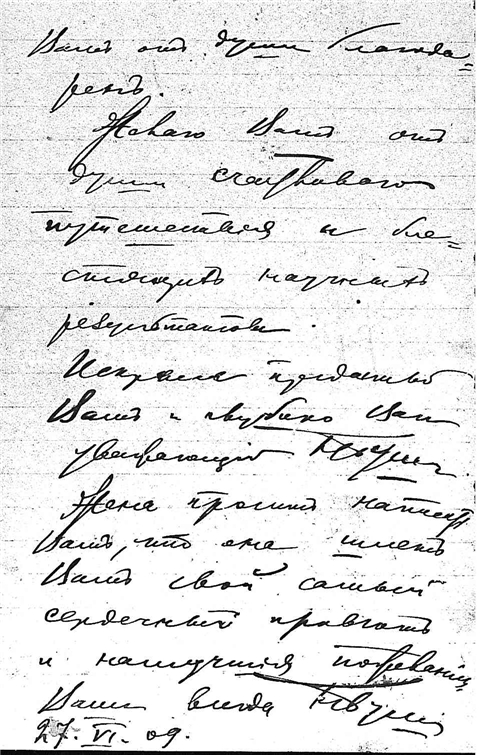 Вамъ отъ души благода=
ренъ.
Желаю Вамъ отъ
души счастливаго
путешествія и бле=
стящихъ научныхъ
результатовъ.
Искренне преданный
Вамъ и глубоко Вас
уважающій
Жена проситъ написать
Вамъ, что она шлетъ
Вамъ свой самый
сердечный приветъ
и наилучшія пожеланія.
Вашъ всегда
27. VI. 09.